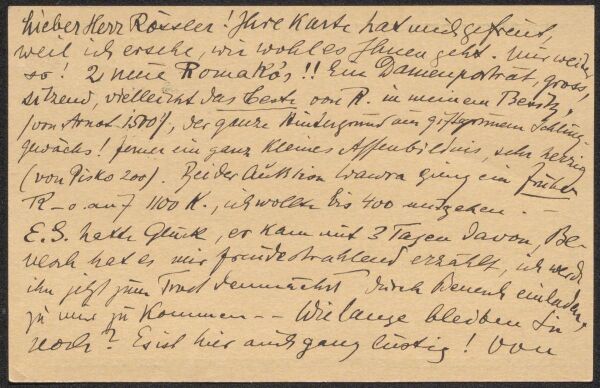 Lieber Herr Rössler! Ihre Karte hat mich gefreut,
weil ich ersehe, wie wohl es Ihnen geht. Nur weiter
so! 2 neue Romako's!! Ein Damenporträt, gross,
sitzend, vielleicht das beste von R. in meinem Besitz,
(von Arnot 1500), der ganze Hintergrund aus giftgrünem Schling-
gewächs! ferner ein ganz kleines Affenbildnis, sehr herzig
(von Pisko 200). Bei der Auktion Wawra ging ein früher
R-o. auf 1100 K., ich wollte bis 400 mitgehen. -
E.S. hatte Glück, er kam mit 3 Tagen davon, Be-
nesch hat es mir freudestrahlend erzählt, ich werde
ihn jetzt zum Trost demnächst durch Benesch einladen,
zu mir zu kommen -- Wie lange bleiben Sie
noch? Es ist hier auch ganz lustig! Von